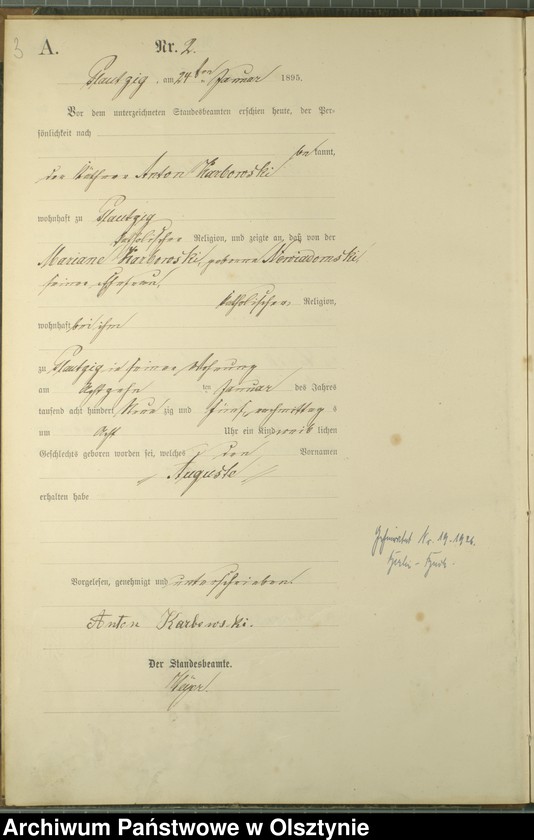 3
A.
Nr. 2.
Plautzig, am 24ten Januar 1895.
Vor dem unterzeichneten Standesbeamten erschien heute, der Per-
sönlichkeit nach
bekannt,
der Käthner Anton Karbowski
wohnhaft zu Plautzig
katholischer Religion, und zeigte an, daß von der
Mariane Karbowski, geborne Newiadomski
seiner Ehefrau,
katholischer Religion,
wohnhaft bei ihm
zu Plautzig in seiner Wohnung
am Achtzehn ten Januar des Jahres
tausend acht hundert Neun zig und fünf, vormittag s
um Acht Uhr ein Kind weib lichen
Geschlechts geboren worden sei, welches den Vornamen
Auguste
erhalten habe
Vorgelesen, genehmigt und unterschrieben
Anton Karbowski.
Der Standesbeamte.
Geheiratet Nr. 19. 1926.
Archiwum Państwowe w Olsztynie